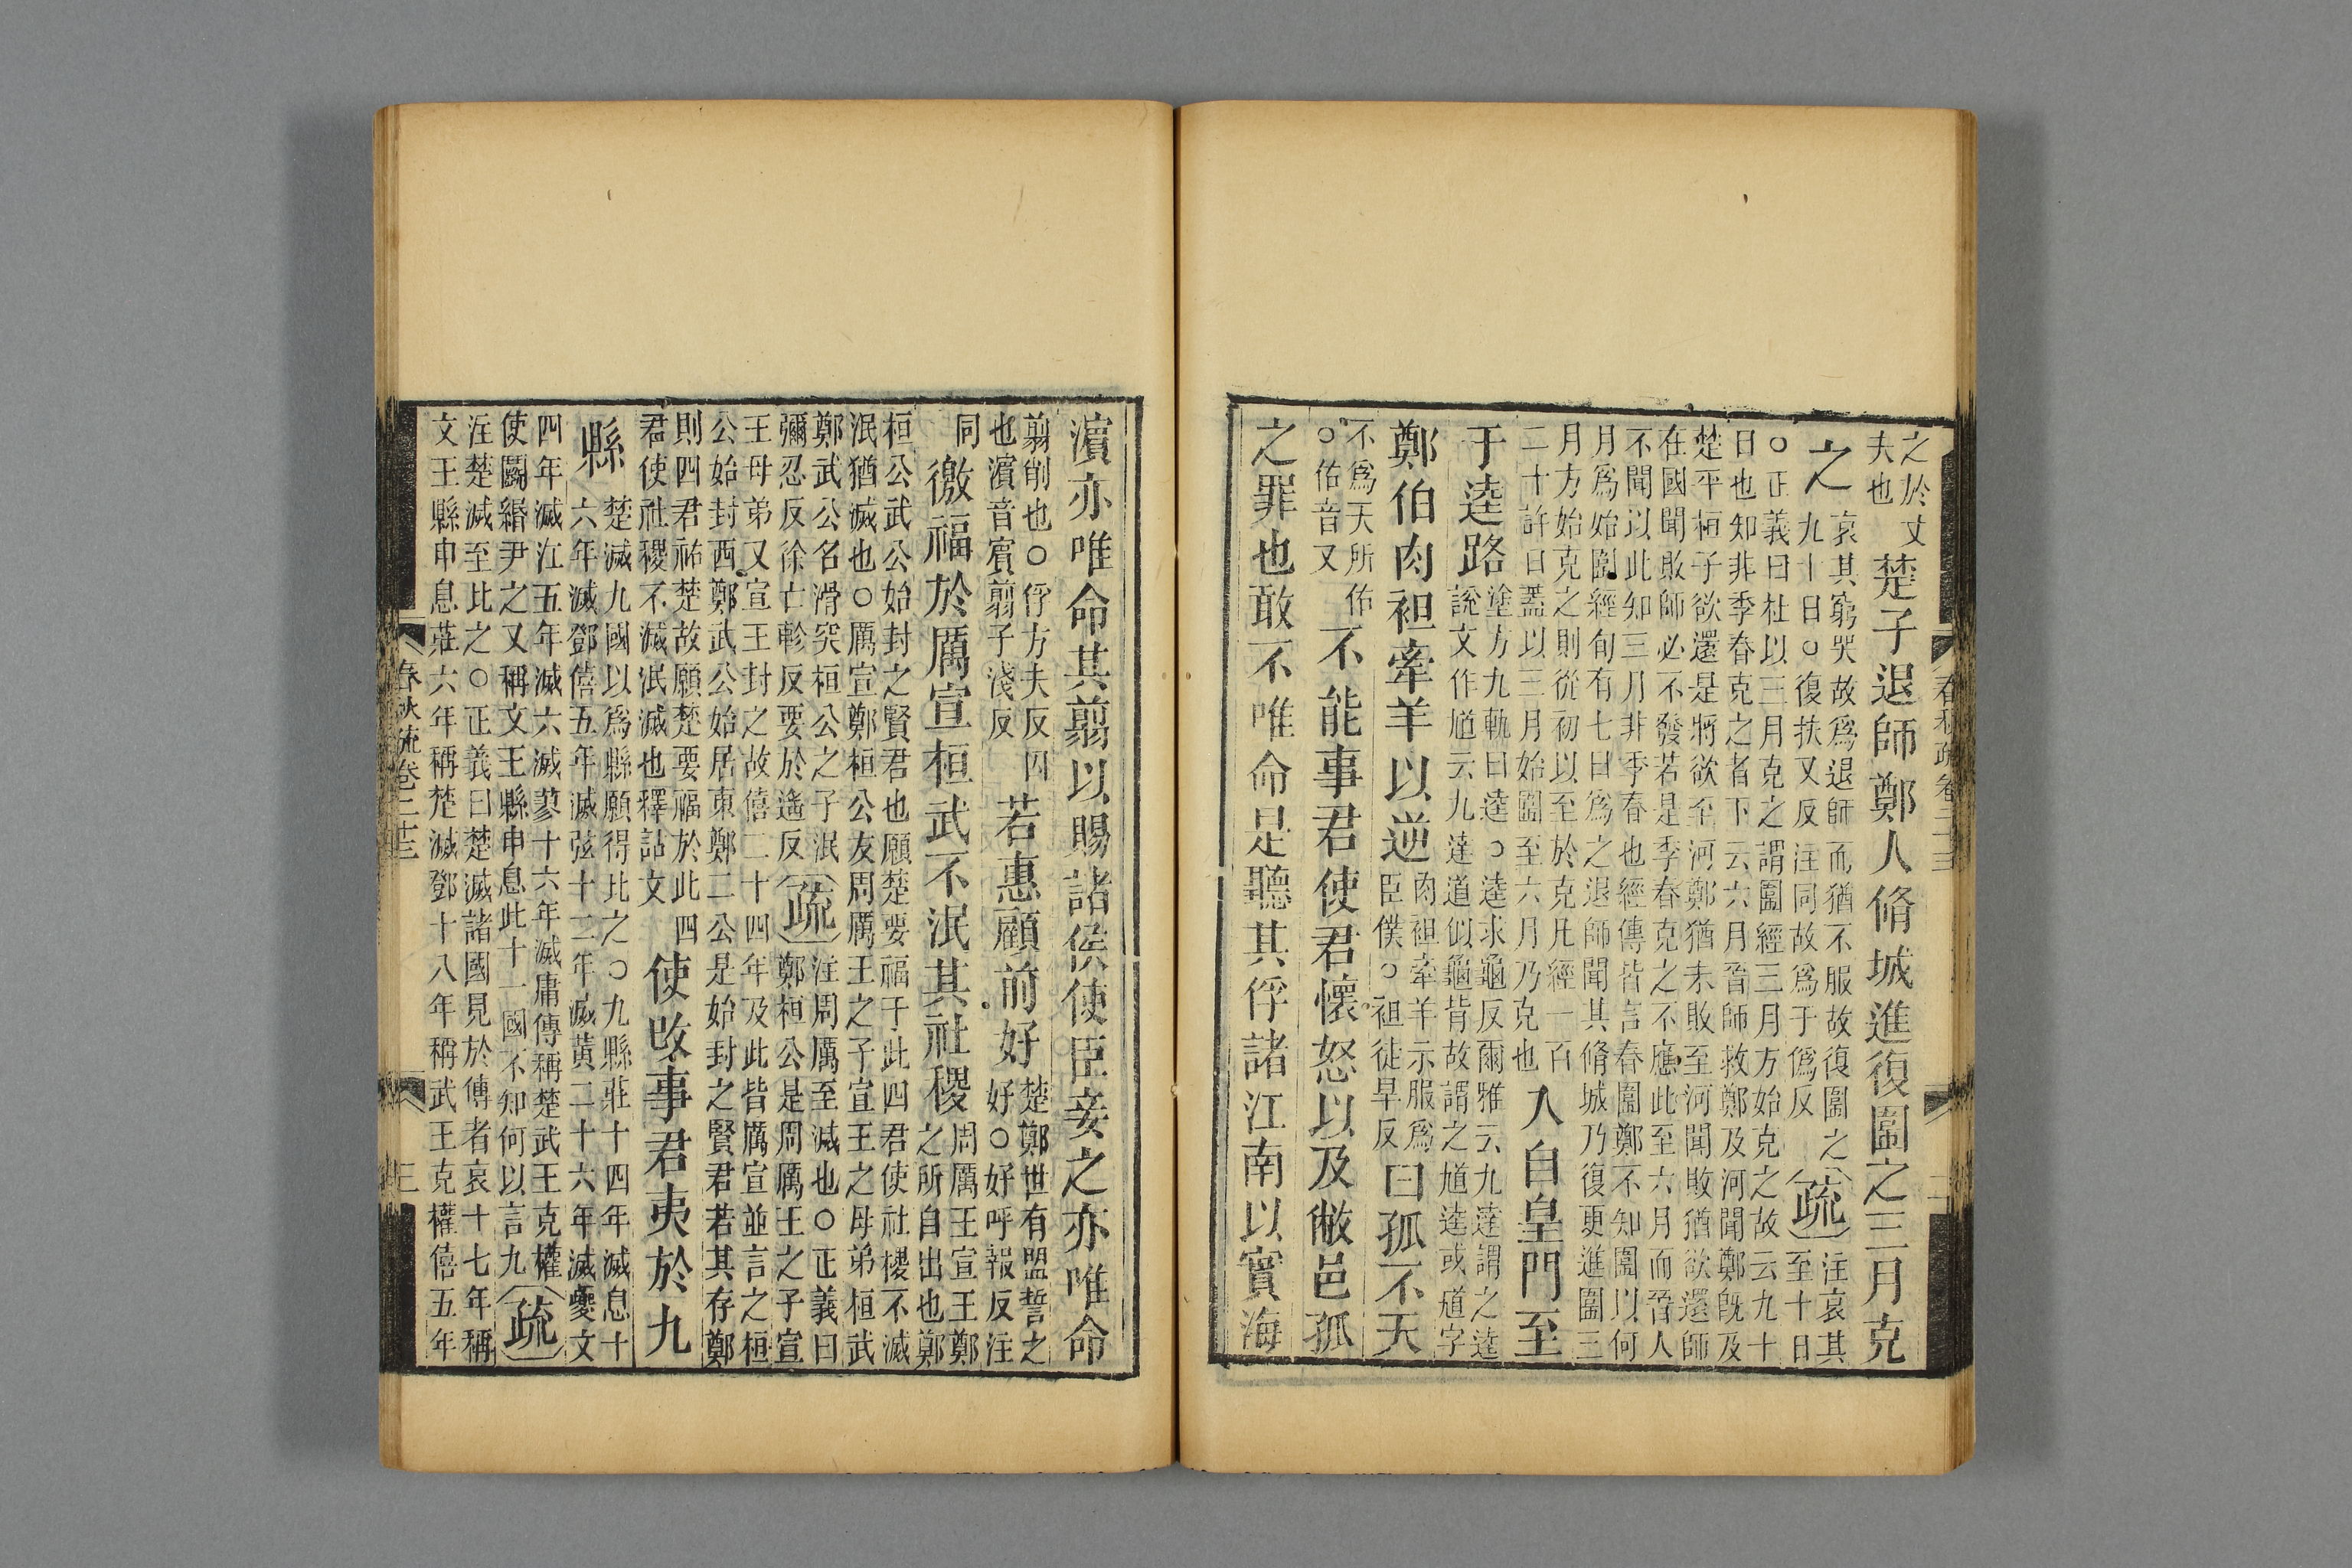 春秋疏卷二十三 二
之於丈
夫也
楚子退師鄭人脩城進復圍之三月克
之
哀其窮哭故爲退師而猶不服故復圍之
九十日○復扶又反注同故爲于僞反
疏
注哀其
至十日
○正義曰杜以三月克之謂圍經三月方始克之故云九十
日也知非季春克之者下云六月晉師救鄭及河聞鄭既及
楚平桓子欲還是將欲至河鄭猶未敗至河聞敗猶欲還師
在國聞敗師必不發若是季春克之不應此至六月而晉人
不聞以此知三月非季春也經傳皆言春圍鄭不知圍以何
月爲始圍經旬有七日爲之退師聞其脩城乃復更進圍三
月方始克之則從初以至於克凡經一百
二十許日蓋以三月始圍至六月乃克也
入自皇門至
于逵路
塗方九軌曰逵○逵求龜反爾雅云九達謂之逵
說文作馗云九達道似龜背故謂之馗逵或馗字
鄭伯肉袒牽羊以逆
肉袒牽羊示服爲
臣僕○袒徒旱反
曰孤不天
不爲天所佑
○佑音又
不能事君使君懷怒以及敝邑孤
之罪也敢不唯命是聽其俘諸江南以實海
濱亦唯命其翦以賜諸侯使臣妾之亦唯命
翦削也○俘方夫反囚
也濱音賓翦子淺反
若惠顧前好
楚鄭世有盟誓之
好○好呼報反注
同
徼福於厲宣桓武不泯其社稷
周厲王宣王鄭
之所自出也鄭
桓公武公始封之賢君也願楚要福于此四君使社稷不滅
泯猶滅也○厲宣鄭桓公友周厲王之子宣王之母弟桓武
鄭武公名滑突桓公之子泯
彌忍反徐亡軫反要於遙反
疏
注周厲至滅也○正義曰
鄭桓公是周厲王之子宣
王母弟又宣王封之故僖二十四年及此皆厲宣並言之桓
公始封西鄭武公始居東鄭二公是始封之賢君若其存鄭
則四君祐楚故願楚要福於此四
君使社稷不滅泯滅也釋詁文
使改事君夷於九
縣
楚滅九國以爲縣願得比之○九縣莊十四年滅息十
六年滅鄧僖五年滅弦十二年滅黃二十六年滅夔文
四年滅江五年滅六滅蓼十六年滅庸傳稱楚武王克權
使鬬緡尹之又稱文王縣申息此十一國不知何以言九
疏
注楚滅至此之○正義曰楚滅諸國見於傳者哀十七年稱
文王縣申息莊六年稱楚滅鄧十八年稱武王克權僖五年
春秋疏卷二十三 三